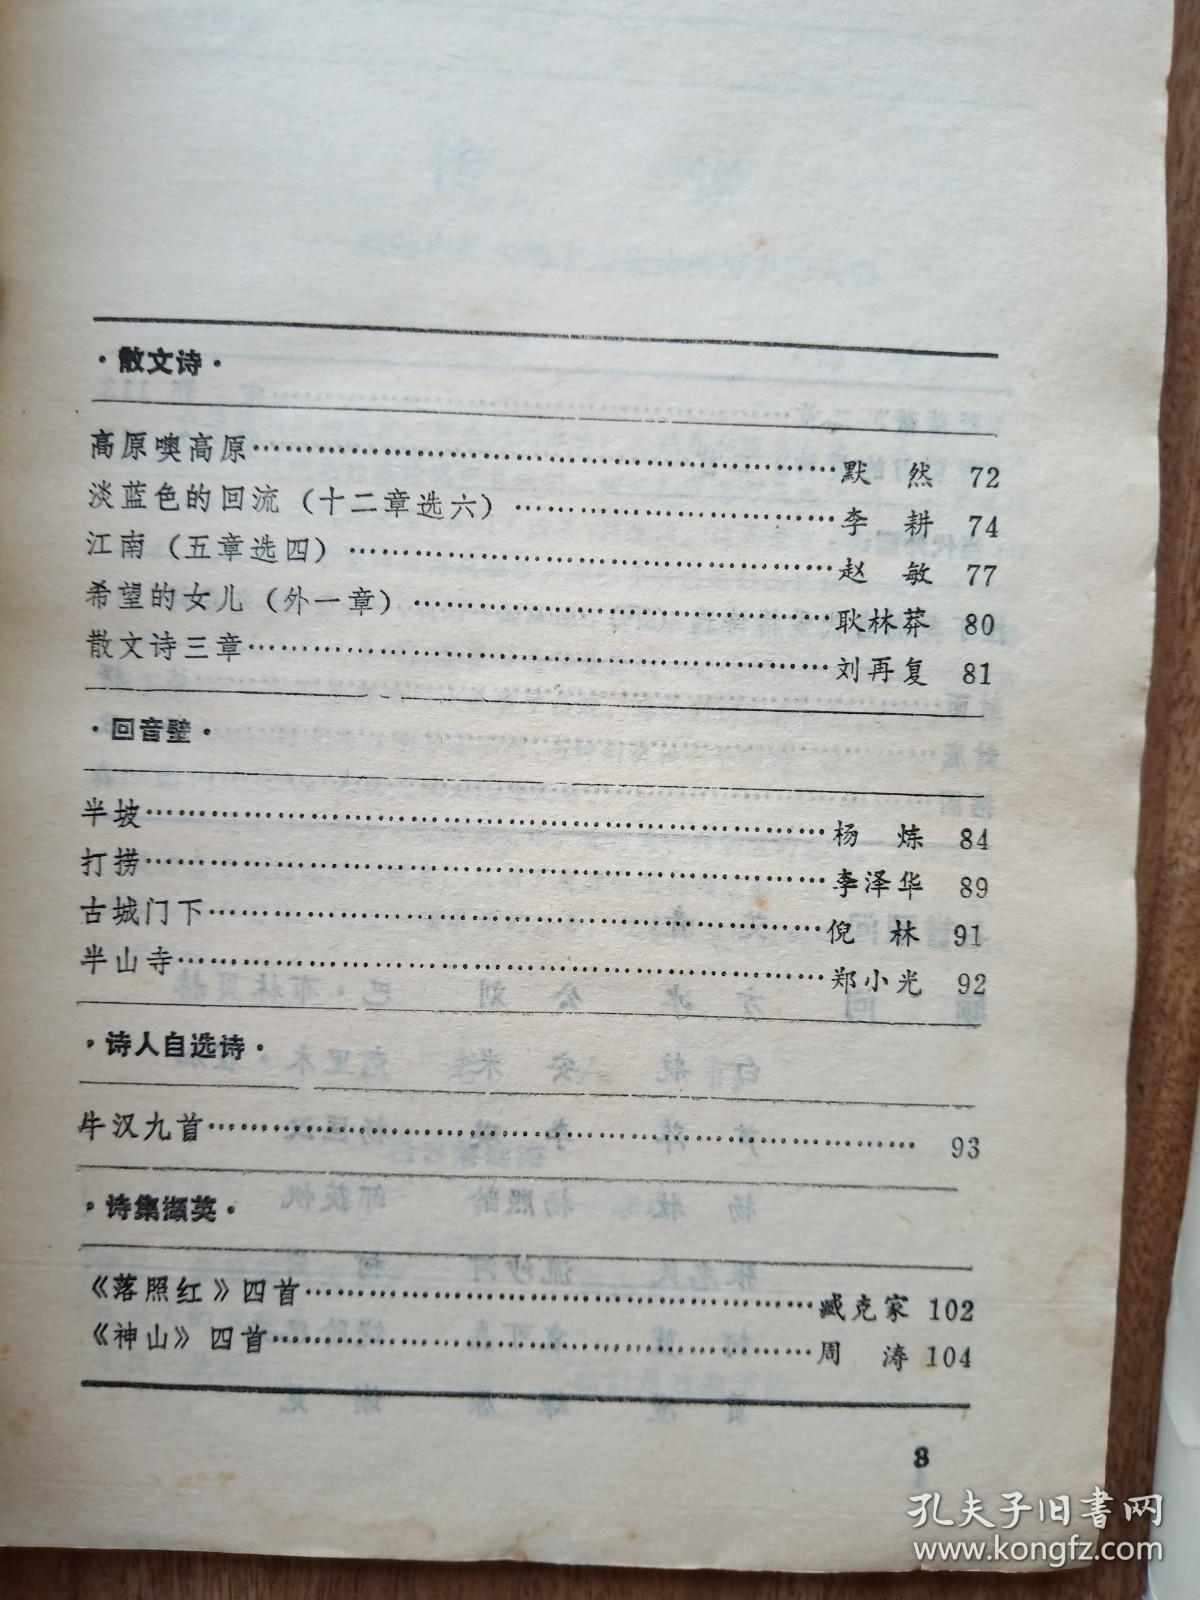 ·散文诗·
高原噢高原……默 然 72
淡蓝色的回流（十二章选六）……李 耕 74
江南（五章选四）……赵 敏 77
希望的女儿（外一章）……耿林莽 80
散文诗三章……刘再复 81
·回音壁·
半坡……杨 炼 84
打捞……李泽华 89
古城门下……倪 林 91
半山寺……郑小光 92
·诗人自选诗·
牛汉九首…… 93
·诗集撷英·
《落照红》四首……臧克家 102
《神山》四首……周 涛 104
3
孔夫子旧书网
www.kongfz.com